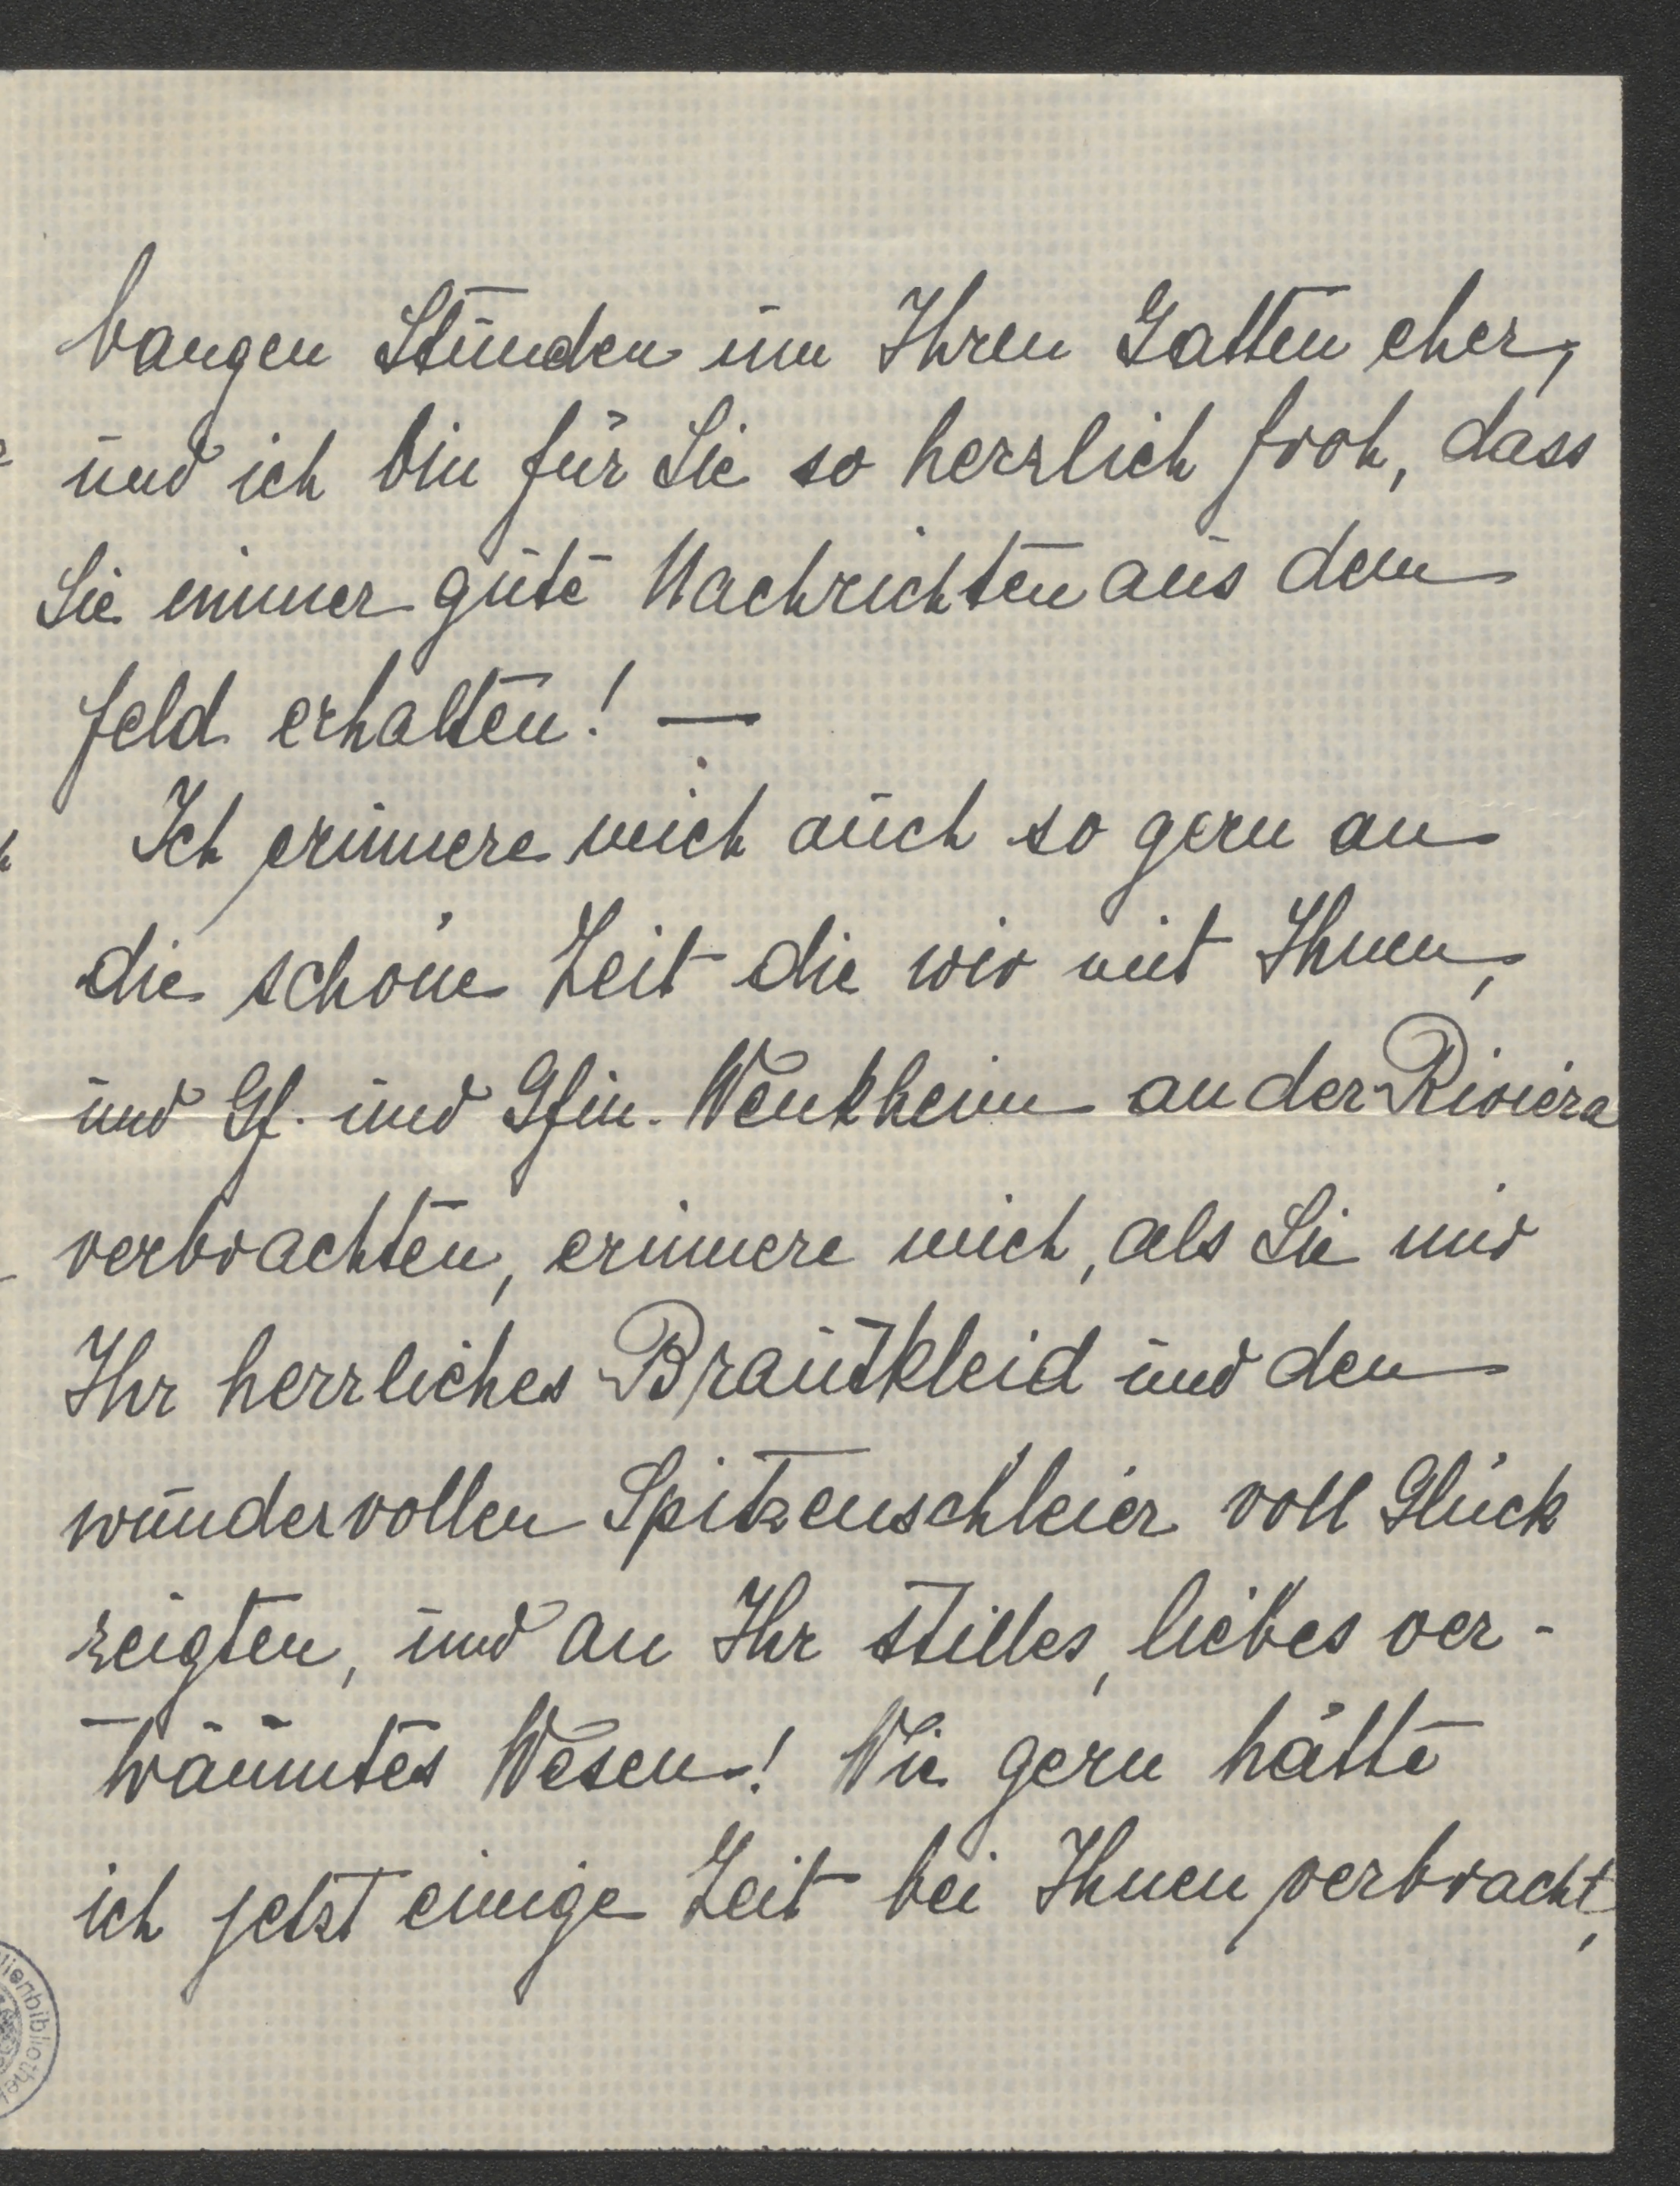 bangen Stunden um Ihren Gatten eher,
und ich bin für Sie so herzlich froh, dass
Sie immer gute Nachrichten aus dem
Feld erhalten! —
Ich erinnere mich auch so gern an
die schöne Zeit die wir mit Ihnen,
und Gf. und Gfin. Wenkheim an der Riviera
verbrachten, erinnere mich, als Sie mir
Ihr herrliches Brautkleid und den
wundervollen Spitzenschleier voll Glück
zeigten, und an Ihr stilles, liebes ver-
träumtes Wesen! Wie gern hätte
ich jetzt einige Zeit bei Ihnen verbracht,